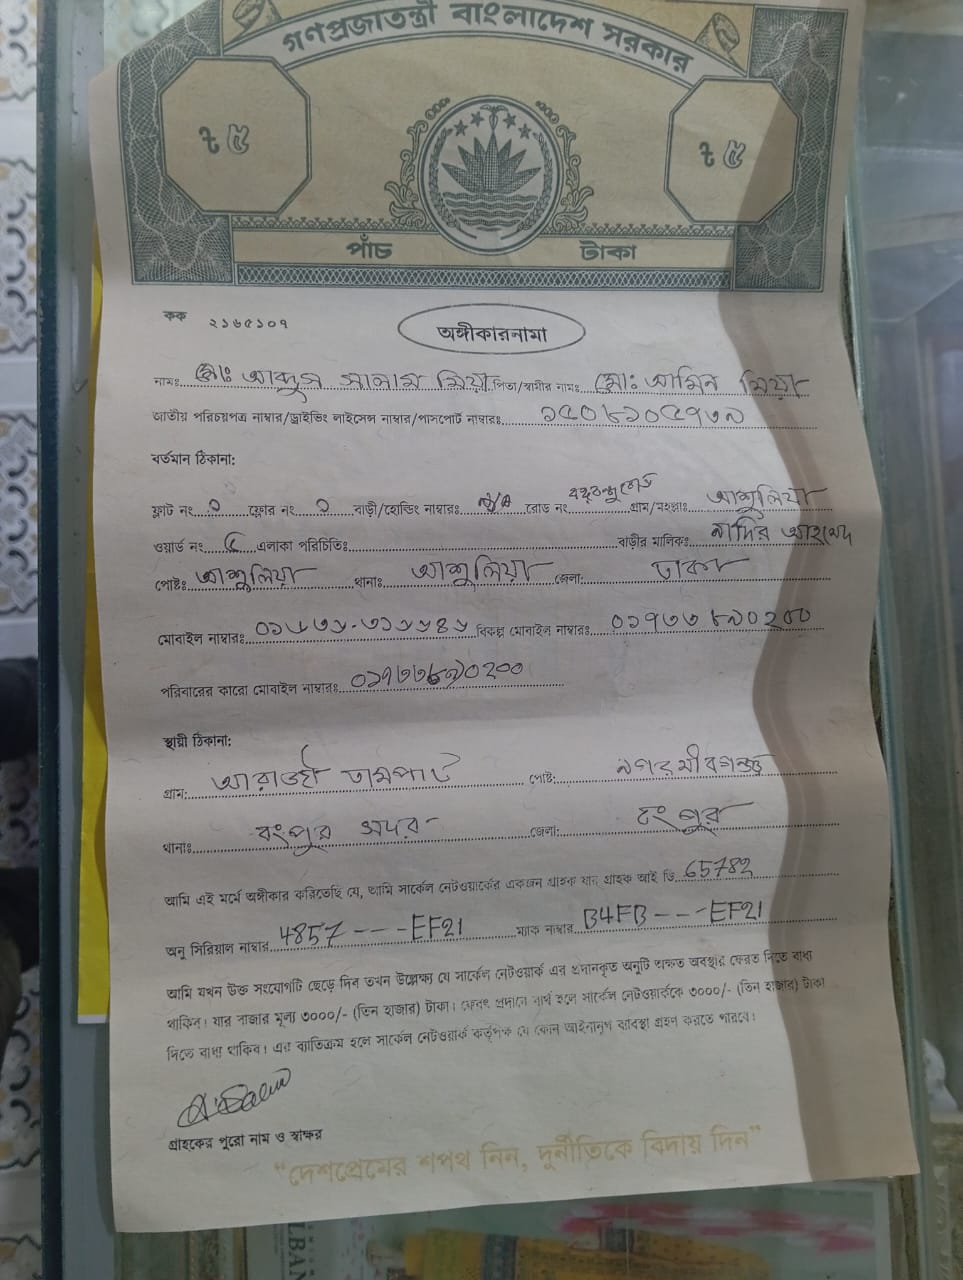 গণপ্রজাতন্ত্রী বাংলাদেশ সরকার
৳ ৫ ৳ ৫
পাঁচ টাকা
কক ২১৬৫১০৭
অঙ্গীকারনামা
নামঃ মোঃ আব্দুস সালাম মিয়া পিতা/স্বামীর নামঃ মোঃ আমিন মিয়া
জাতীয় পরিচয়পত্র নাম্বার/ড্রাইভিং লাইসেন্স নাম্বার/পাসপোর্ট নাম্বারঃ
বর্তমান ঠিকানা:
ফ্লাট নং ১ ফ্লোর নং ১ বাড়ী/হোল্ডিং নাম্বারঃ N/A রোড নং বঙ্গবন্ধু রোড গ্রাম/মহল্লাঃ আশুলিয়া
ওয়ার্ড নং ৫ এলাকা পরিচিতিঃ বাড়ীর মালিকঃ নাদির আহমেদ
পোষ্টঃ আশুলিয়া থানাঃ আশুলিয়া জেলা: ঢাকা
মোবাইল নাম্বারঃ বিকল্প মোবাইল নাম্বারঃ
পরিবারের কারো মোবাইল নাম্বারঃ
স্থায়ী ঠিকানা:
গ্রাম: তামপাট পোষ্ট:
থানাঃ রংপুর সদর জেলা: রংপুর
আমি এই মর্মে অঙ্গীকার করিতেছি যে, আমি সার্কেল নেটওয়ার্কের একজন গ্রাহক যার গ্রাহক আই ডি 65782
অনু সিরিয়াল নাম্বার 4857----EF21 ম্যাক নাম্বার B4FB---EF21
আমি যখন উক্ত সংযোগটি ছেড়ে দিব তখন উল্লেক্ষ্য যে সার্কেল নেটওয়ার্ক এর প্রদানকৃত অনুটি অক্ষত অবস্থায় ফেরত দিতে বাধ্য
থাকিব। যার বাজার মূল্য ৩০০০/- (তিন হাজার) টাকা। ফেরৎ প্রদানে ব্যর্থ হলে সার্কেল নেটওয়ার্ককে ৩০০০/- (তিন হাজার) টাকা
দিতে বাধ্য থাকিব। এর ব্যতিক্রম হলে সার্কেল নেটওয়ার্ক কর্তৃপক্ষ যে কোন আইনানুগ ব্যবস্থা গ্রহণ করতে পারবে।
গ্রাহকের পুরো নাম ও স্বাক্ষর
“দেশপ্রেমের শপথ নিন, দুর্নীতিকে বিদায় দিন”